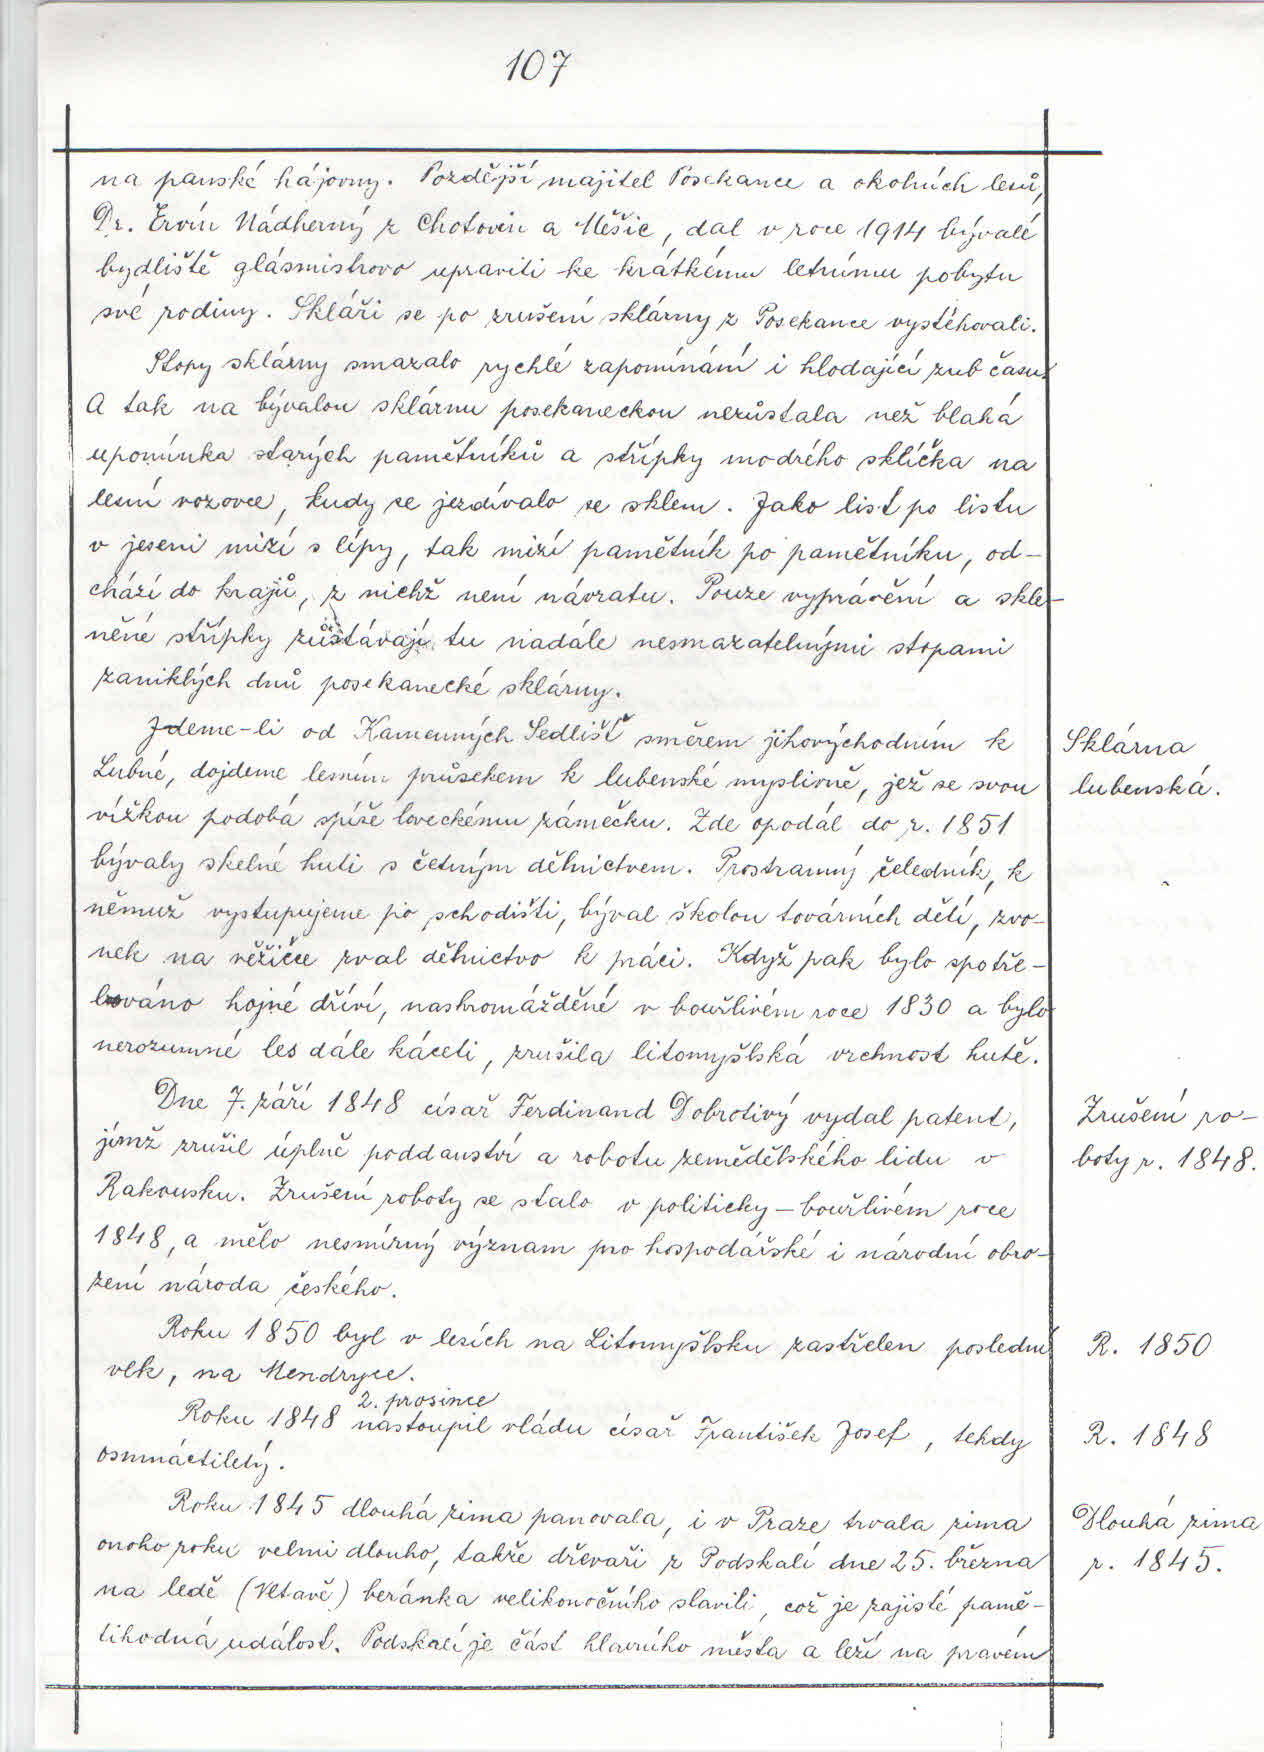 107
na panské hájovny. Pozdější majitel Posekance a okolních lesů,
Dr. Ervín Nádherný z Chotovin a Měšic, dal v roce 1914 bývalé
bydliště glásmistrovo upraviti ke krátkému letnímu pobytu
své rodiny. Skláři se po zrušení sklárny z Posekance vystěhovali.
Stopy sklárny smazalo rychlé zapomínání i hlodající zub času.
A tak na bývalou sklárnu posekaneckou nezůstala než blahá
upomínka starých pamětníků a střípky modrého sklíčka na
lesní vozovce, kudy se jezdívalo se sklem. Jako list po listu
v jeseni mizí s lípy, tak mizí pamětník po pamětníku, od-
chází do krajů, z nichž není návratu. Pouze vyprávění a skle-
něné střípky zůstávají tu nadále nesmazatelnými stopami
zaniklých dnů posekanecké sklárny.
Jdeme-li od Kamenných Sedlišť směrem jihovýchodním k
Sklárna
Lubné, dojdeme lesním průsekem k lubenské myslivně, jež se svou
lubenská.
vížkou podobá spíše loveckému zámečku. Zde opodál do r. 1851
bývaly skelné huti s četným dělnictvem. Prostranný čeledník, k
němuž vystupujeme po schodišti, býval školou továrních dětí, zvo-
nek na věžičce zval dělnictvo k práci. Když pak bylo spotře-
bováno hojné dříví, nashromážděné v bouřlivém roce 1830 a bylo
nerozumné les dále káceti, zrušila litomyšlská vrchnost hutě.
Dne 7. září 1848 císař Ferdinand Dobrotivý vydal patent,
Zrušení ro-
jímž zrušil úplně poddanství a robotu zemědělského lidu v
boty r. 1848.
Rakousku. Zrušení roboty se stalo v politicky-bouřlivém roce
1848, a mělo nesmírný význam pro hospodářské i národní obro-
zení národa českého.
Roku 1850 byl v lesích na Litomyšlsku zastřelen poslední
R. 1850
vlk, na Mendryce.
2. prosince
Roku 1848 nastoupil vládu císař František Josef, tehdy
R. 1848
osmnáctiletý.
Roku 1845 dlouhá zima panovala, i v Praze trvala zima
Dlouhá zima
onoho roku velmi dlouho, takže dřevaři z Podskalí dne 25. března
r. 1845.
na ledě (Vltavě) beránka velikonočního slavili, což je zajisté pamě-
tihodná událost. Podskalí je část hlavního města a leží na pravém